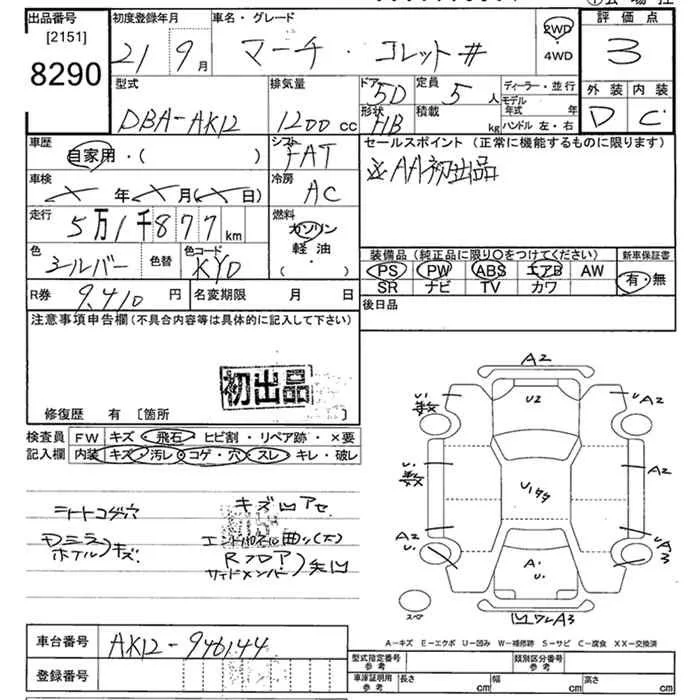 出品番号 初度登録年月 車名・グレード 2WD 評価点
[2151] 21 9月 マーチ・コレット# ・4WD 3
8290
型式 排気量 ドア 5D 定員 5人 ディーラー・並行 外装 内装
DBA-AK12 1200cc 形状 HB 積載 kg モデル年式 年 D C
ハンドル 左・右
車歴 シフト セールスポイント (正常に機能するものに限ります)
自家用・( ) FAT ※AA初出品
車検 冷房
×年×月(×日) AC
走行 燃料
5万1千877km ガソリン
軽油
・( )
色 色替 色コード 装備品 (純正品に限り○をつけてください) 新車保証書
シールバー KYO PS PW ABS エアB AW 有・無
SR ナビ TV カワ
R券 9,410円 名変期限 月 日 後日品
注意事項申告欄 (不具合内容等は具体的に記入して下さい)
初出品
修復歴 有 [箇所 ]
検査員 FW キズ・飛石・ヒビ割・リペア跡・×要
記入欄 内装 キズ・汚レ・コゲ・穴・スレ・キレ・破レ
シートコゲ穴 キズ凹アセ
ホイル キズ エンドパネル曲り(大)
Rフロア
サイドメンバー
A2
U1 数 U2 UA2
U1 数 A2
A2 U1 UA3
A1 U1
スペア A3
車台番号 AK12-946144
登録番号
A-キズ E-エクボ U-凹み W-補修跡 S-サビ C-腐食 XX-交換済
型式指定番号 参考 類別区分番号 参考
車庫証明用 参考 長さ cm 幅 cm 高さ cm